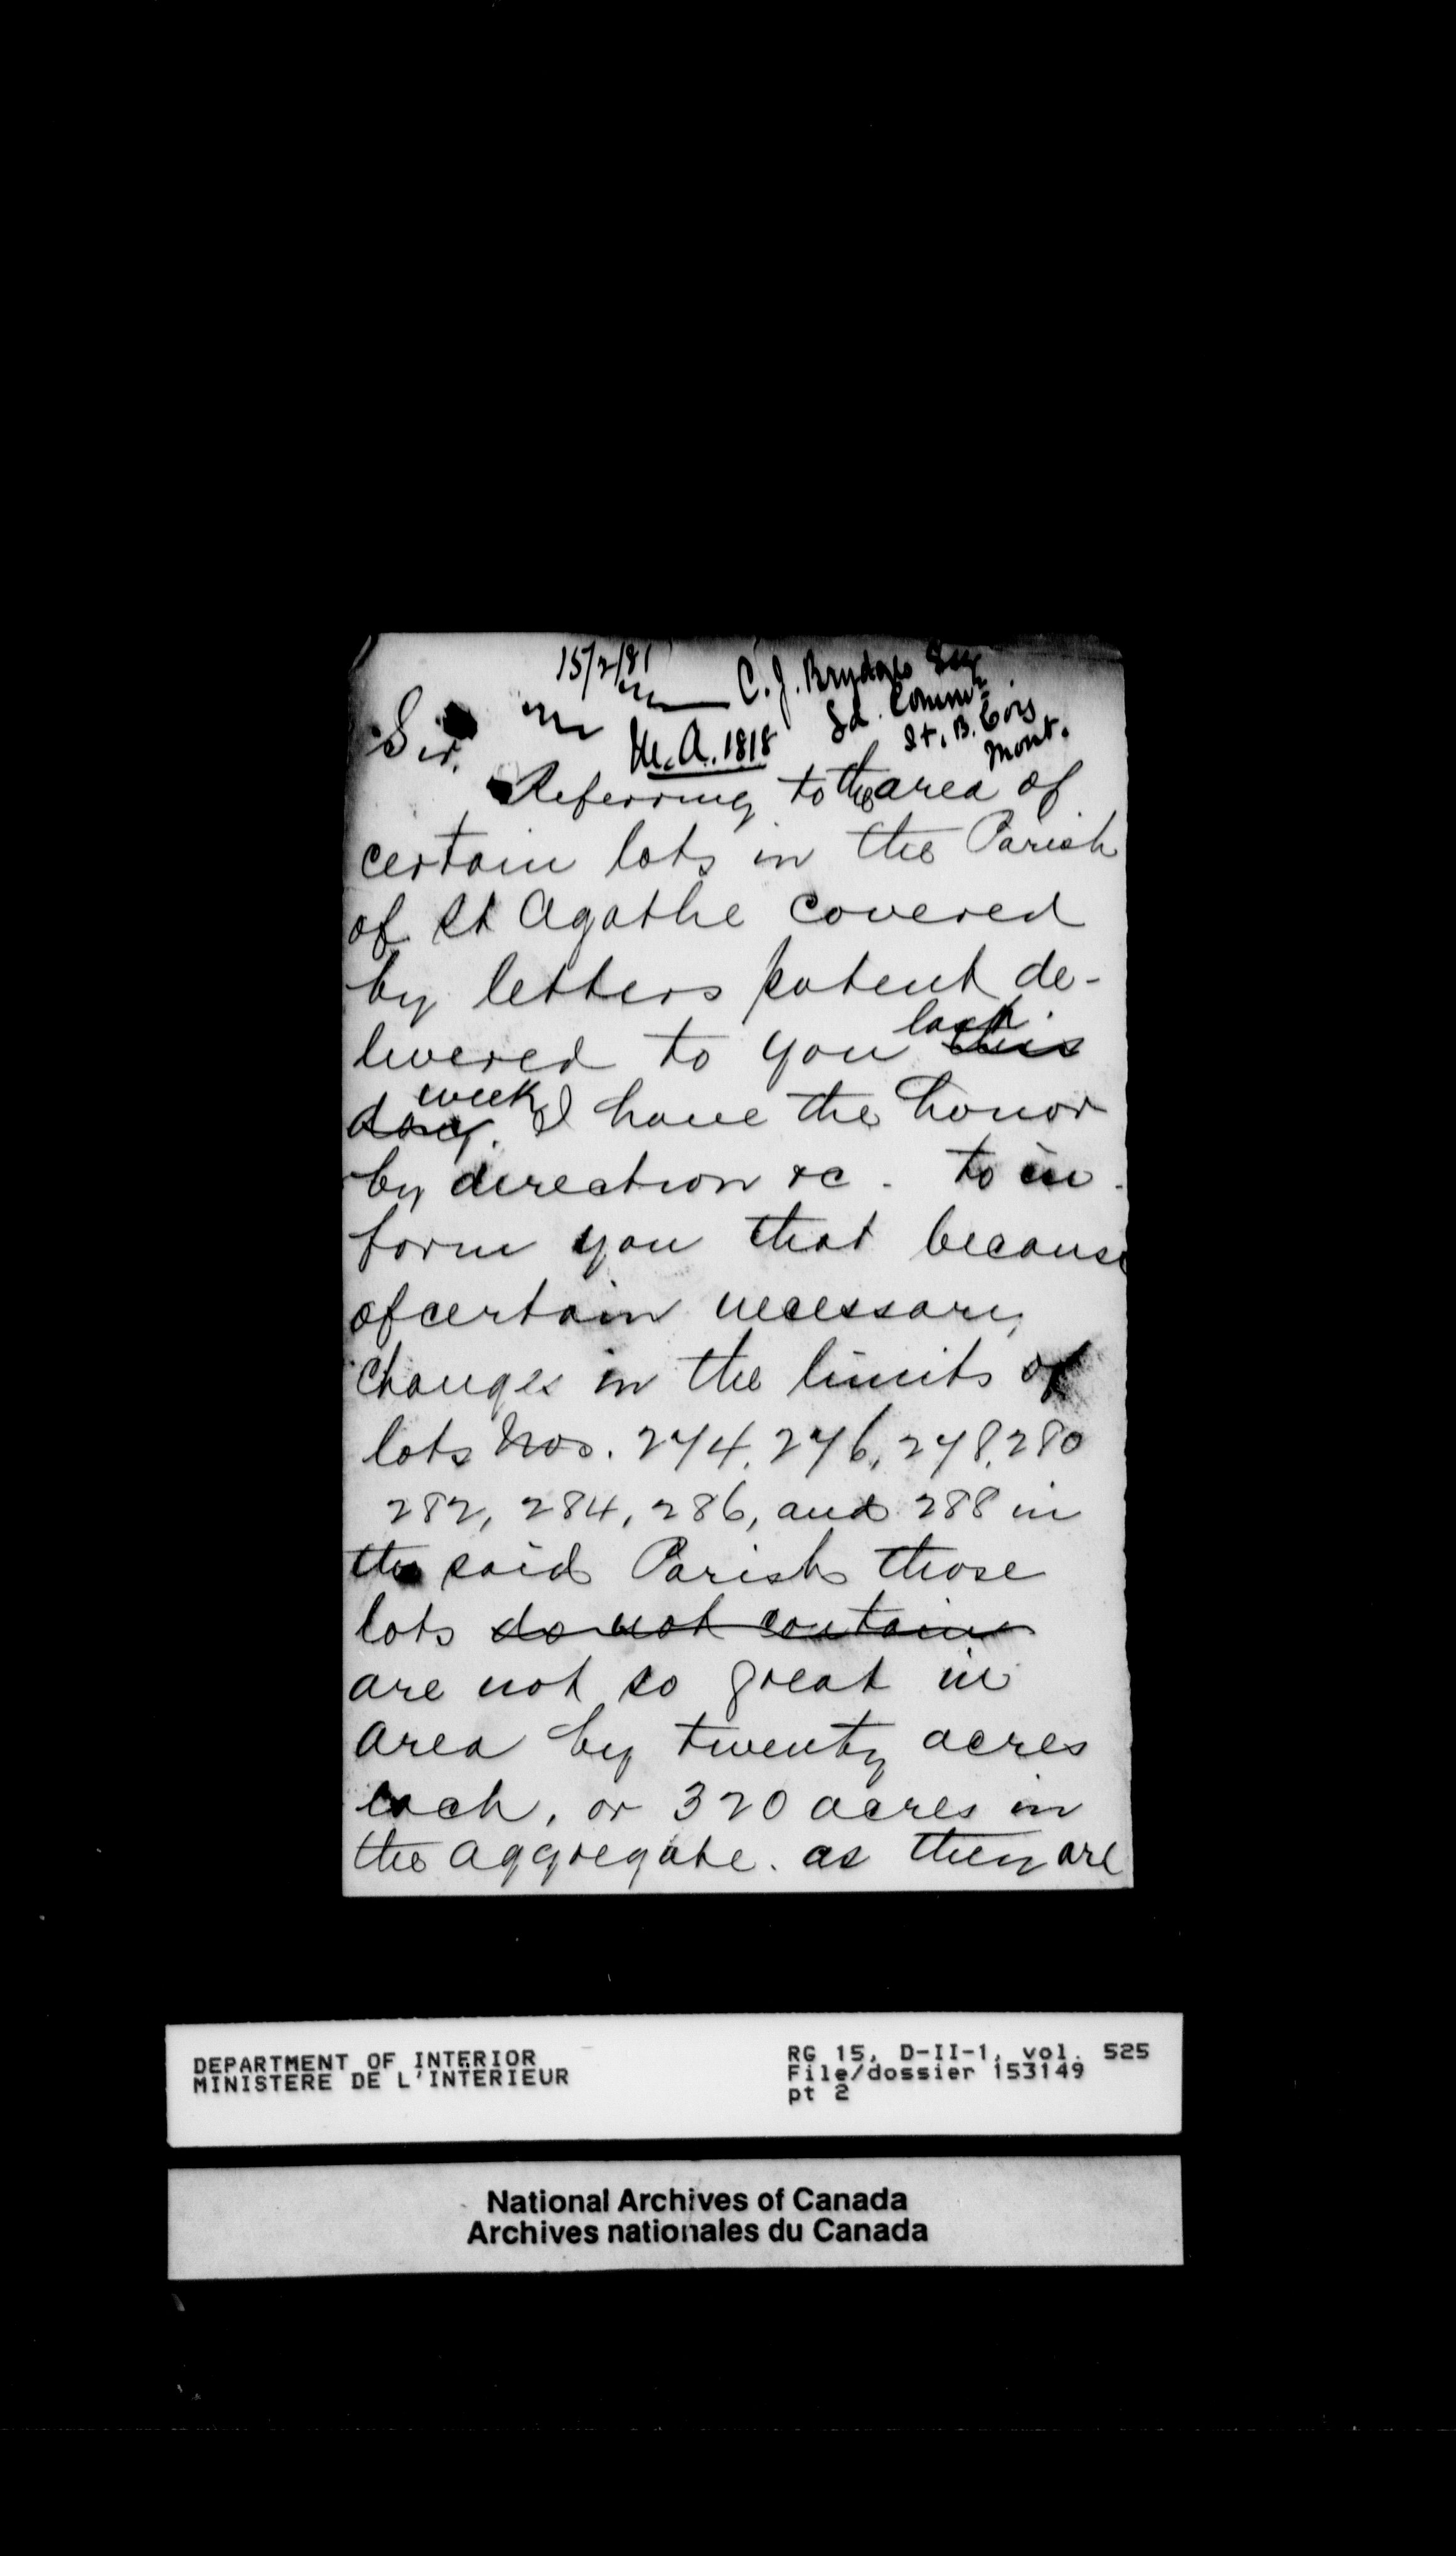 15/2/81
C. J. Brydges Esq
Ld. Commr
H. B. Co's
Mont.
Sir,
M.A. 1818
Referring to the area of
certain lots in the Parish
of St Agathe covered
by letters patent de-
livered to you last this
day week, I have the honor
by direction &c. to in-
form you that because
of certain necessary
changes in the limits of
lots Nos. 274, 276, 278, 280
282, 284, 286, and 288 in
the said Parish those
lots do not contain
are not so great in
area by twenty acres
each, or 320 acres in
the aggregate. as they are
DEPARTMENT OF INTERIOR
MINISTERE DE L'INTERIEUR
RG 15, D-II-1, vol. 525
File/dossier 153149
pt 2
National Archives of Canada
Archives nationales du Canada